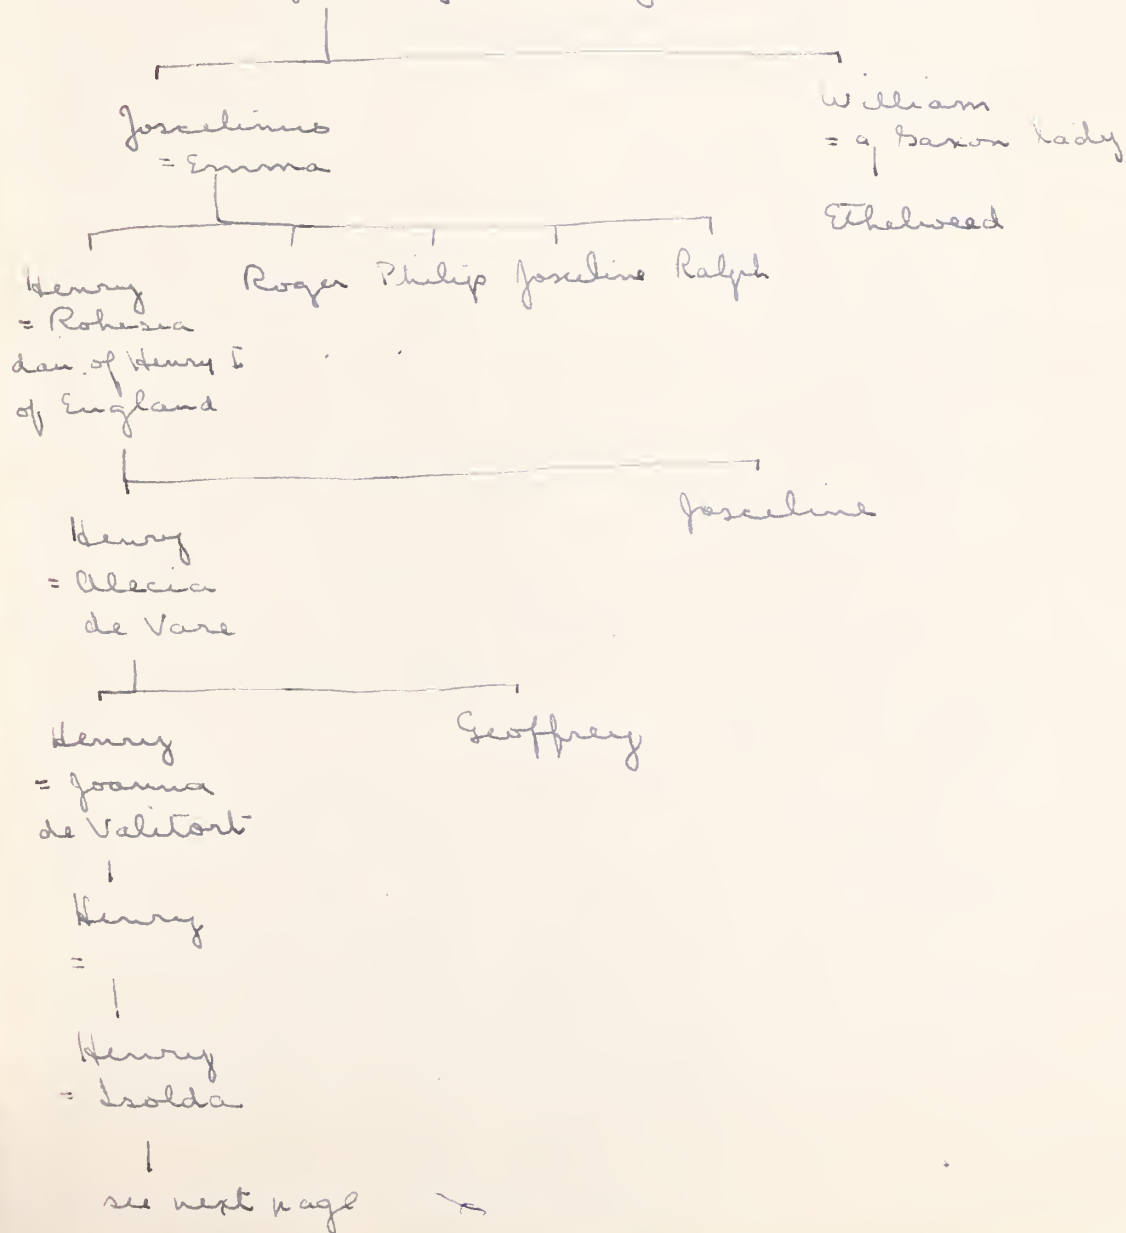 Joscelinus
= Emma
William
= a Saxon lady
Ethelweed
Henry
= Rohesia
dau. of Henry I
of England
Roger Philip Josceline Ralph
Henry
= Alecia
de Vare
Josceline
Henry
= Joanna
de Valitort
Geoffrey
Henry
=
Henry
= Isolda
see next page